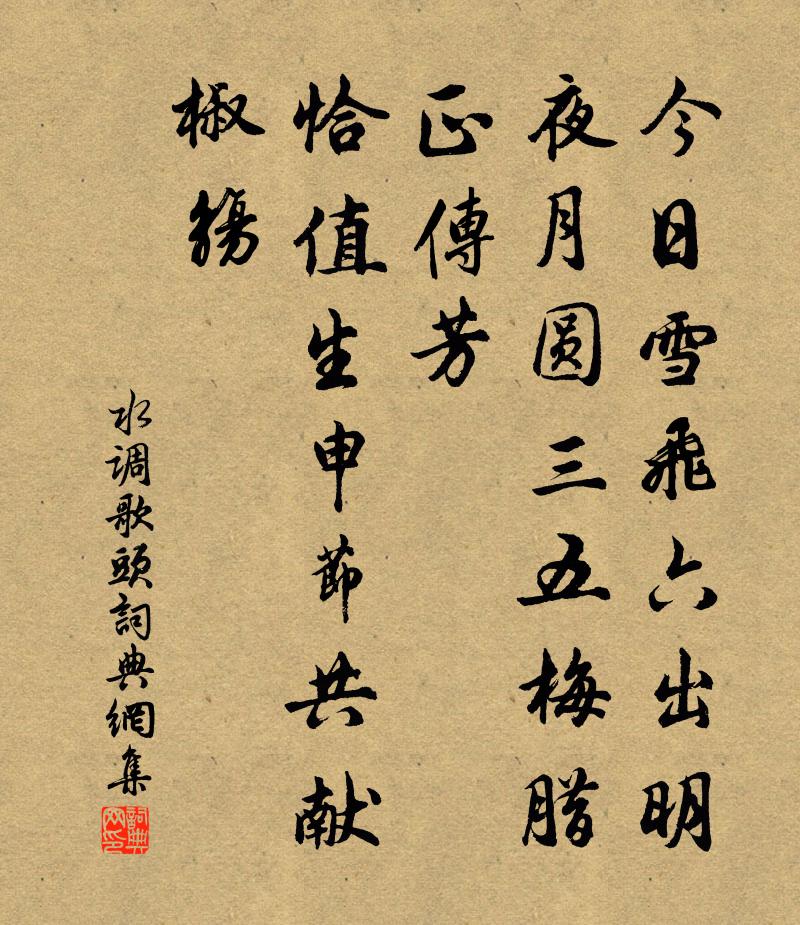 今日雪飛六出明
夜月圆三五梅腊
正傳芳
恰值生申節共献
椒觴
水调歌頭詞典網集
詞典網印